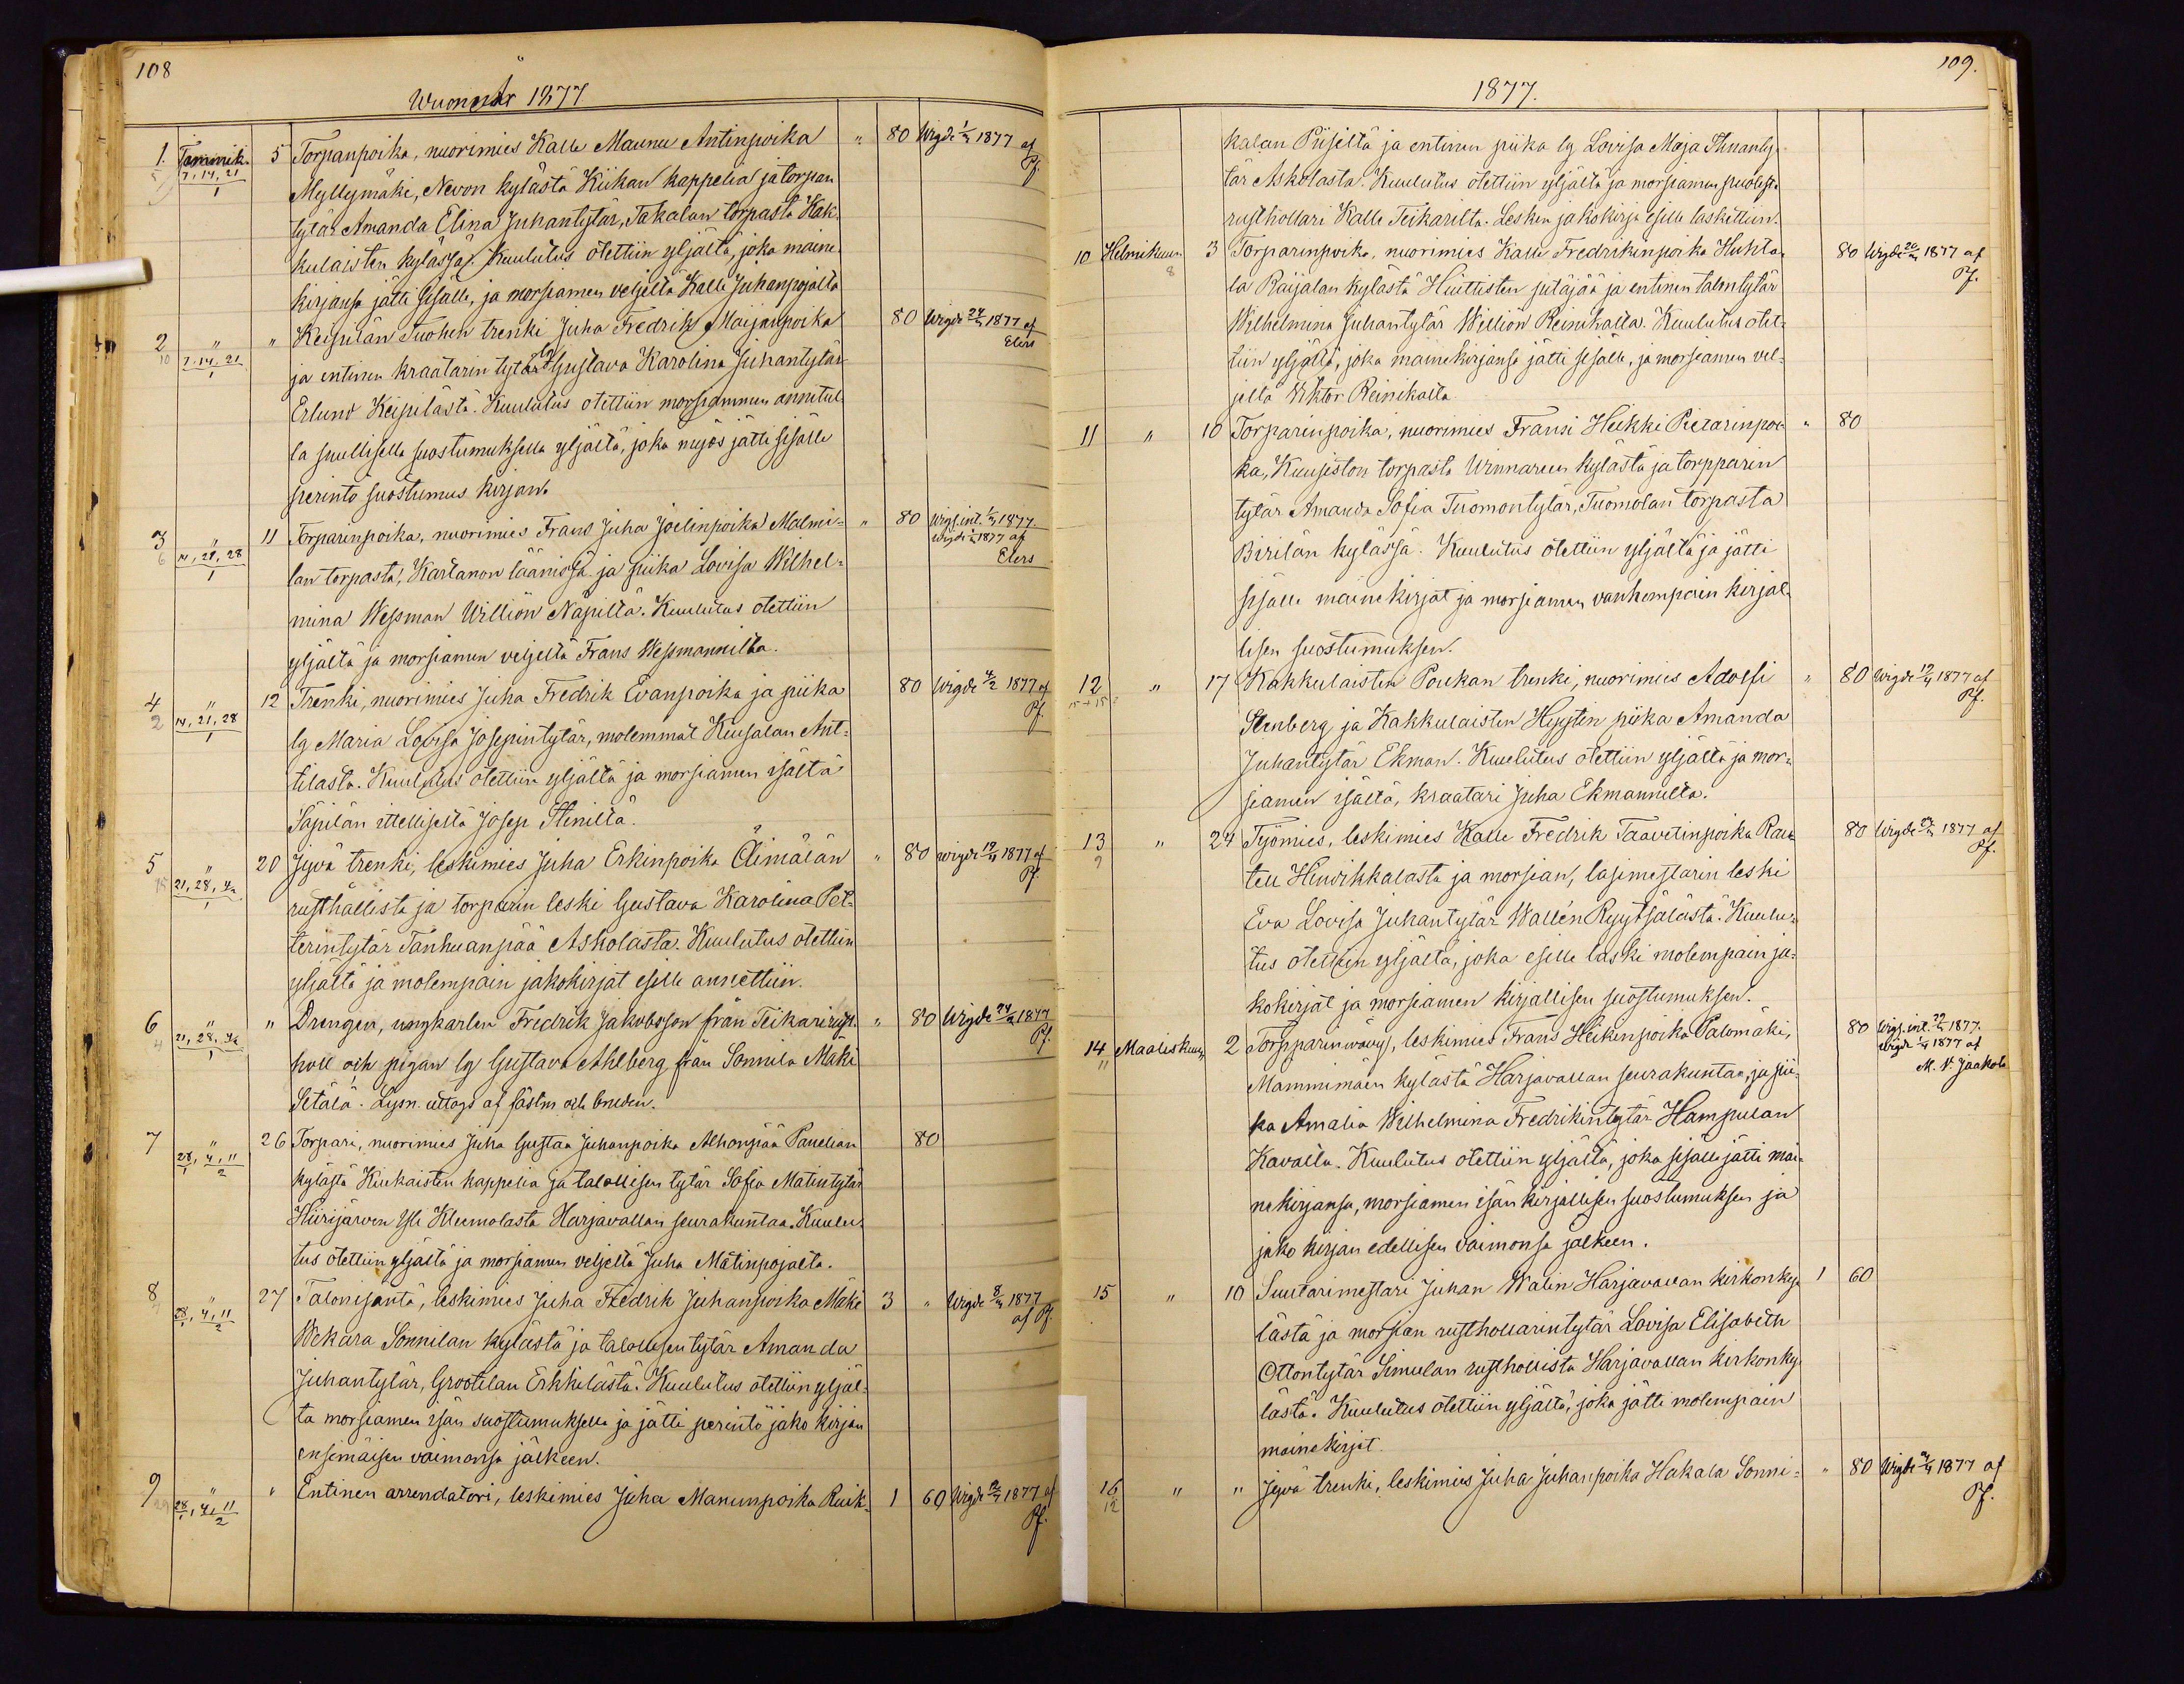 108
Wuonna 1877
1. Tammik. 5 Torpanpoika, nuorimies Kalle Maunu Antinpoika " 80 Wigde 1877 af
7, 14, 21 Pf.
1 Myllymäki, Nevon kylästä Kiikan kappelia ja torpan
tytär Amanda Elina Juhantytär, Takalan torpasta Kak-
kulaisten kylässä. Kuulutus otettiin yljältä, joka maine
kirjansa jätti sisälle, ja morsiamen veljeltä Kalle Juhanpojalta
2 " " Keipilän Tuohen trenki Juha Fredrik Maijanpoika 80 Wigde 1877 af
10 7. 14. 21 Elers
1 ja entinen kraatarin tytär lg Gustava Karolina Juhantytär
Erlund Keipilästä. Kuulutus otettiin morsiammen annetul-
la suullisella suostumuksella yljältä, joka myös jätti sisälle
perintö suostumus kirjan.
3 " 11 Torparinpoika, nuorimies Frans Juha Joelinpoika Malmi- " 80 Wigs. int. 1877
6 14, 21, 28 Wigde 1877 af
1 lan torpasta, Kartanon läänissä ja piika Lovisa Wilhel- Elers
mina Wessman Willion Näpiltä. Kuulutus otettiin
yljältä ja morsiamen veljeltä Frans Wessmannilta.
4 " 12 Trenki, nuorimies Juha Fredrik Evanpoika ja piika 80 Wigde 1877 af
2 14, 21, 28 Pf.
1 lg Maria Lovisa Josepintytär, molemmat Kiusalan Ant-
tilasta. Kuulutus otettiin yljältä ja morsiamen isältä
Säpilän ittelliseltä Josep Steniltä.
5 " 20 Jyvä trenki, leskimies Juha Erkinpoika Älimälän " 80 Wigde 1877 af
21, 28, Pf.
1 rusthållista ja torparin leski Gustava Karolina Pet-
terintytär Tanhuanpää Askolasta. Kuulutus otettiin
yljältä ja molempain jakokirjat esille annettiin.
6 " " Drengen, ungkarlen Fredrik Jakobsson från Teikari rust- " 80 Wigde 1877
4 21, 28, Pf.
1 holl och pigan lg Gustava Ahlberg från Sonnila Mäki
Setälä. Lysn. uttogs af fästm och bruden.
7 " 26 Torpari, nuorimies Juha Gustaa Juhanpoika Alhonpää Panelian 80
28, 4, 11
1 2 kylästä Kiukaisten kappelia ja talollisen tytär Sofia Matintytär
Hiirijärven Yli Kleemolasta Harjavallan seurakuntaa. Kuulu-
tus otettiin yljältä ja morsiamen veljeltä Juha Matinpojalta.
8 " 27 Talonisäntä, leskimies Juha Fredrik Juhanpoika Mäki 3 " Wigde 1877
28, 4, 11 af Pf.
1 2 Wekara Sonnilan kylästä ja talollisen tytär Amanda
Juhantytär, Grootilan Erkkilästä. Kuulutus otettiin yljäl-
tä morsiamen isän suostumuksella ja jätti perintö jako kirjan
ensimäisen vaimonsa jälkeen.
9 " " Entinen arrendatori, leskimies Juha Manunpoika Ruik- 1 60 Wigde 1877 af
28, 4, 11 Pf.
1 2
109.
1877.
kalan Piiseltä ja entinen piika lg Lovisa Maja
tär Askolasta. Kuulutus otettiin yljältä ja morsiamen puolesta
rusthollari Kalle Teikarilta. Lesken jakokirja esille laskettiin.
10 Helmikuun 3 Torparinpoika, nuorimies Kalle Fredrikinpoika Huhta- 80 Wigde 1877 af
8 Pf.
la Raijalan kylästä Huittisten pitäjää ja entinen talontytär
Wilhelmina Juhantytär Willion Reinikalla. Kuulutus otet-
tiin yljältä, joka mainekirjansa jätti sisälle, ja morsiamen vel-
jeltä Viktor Reinikalta.
11 " 10 Torparinpoika, nuorimies Fransi Heikki Pietarinpoi- " 80
ka, Kuusiston torpasta Winnareen kylästä ja torpparin
tytär Amanda Sofia Tuomontytär, Tuomolan torpasta
Pirilän kylässä. Kuulutus otettiin yljältä ja jätti
sisälle maine kirjat ja morsiamen vanhempain kirjal-
lisen suostumuksen.
12 " 17 Kakkulaisten Poukan trenki, nuorimies Adolfi " 80 Wigde 1877 af
Pf.
Stenberg ja Kakkulaisten Hyytin piika Amanda
Juhantytär Ekman. Kuulutus otettiin yljältä ja mor-
siamen isältä, kraatari Juha Ekmannilta.
13 " 24 Työmies, leskimies Kalle Fredrik Taavetinpoika Rau- 80 Wigde 1877 af
9 Pf.
tell Hinvikkalasta ja morsian, lasimestarin leski
Eva Lovisa Juhantytär Wallén Ryytsälästä. Kuulu-
tus otettiin yljältä, joka esille laski molempain ja-
kokirjat ja morsiamen kirjallisen suostumuksen.
14 Maaliskuun 2 Torpparinvävy, leskimies Frans Heikinpoika Palomäki, 80 Wigs. int. 1877.
11 Wigde 1877 af
Mammimäen kylästä Harjavallan seurakuntaa, ja pii- M. V. Jaakola
ka Amalia Wilhelmina Fredrikintytär Hampulan
Kavalla. Kuulutus otettiin yljältä, joka sisälle jätti mai-
nekirjansa, morsiamen isän kirjallisen suostumuksen ja
jako kirjan edellisen vaimonsa jälkeen.
15 " 10 Suutarimestari Juhan Walin Harjavallan kirkonky- 1 60
lästä ja morsian rusthollarintytär Lovisa Elisabeth
Ottontytär Simulan rusthollista Harjavallan kirkonky-
lästä. Kuulutus otettiin yljältä, joka jätti molempain
mainekirjat.
16 " " Jyvä trenki, leskimies Juha Juhanpoika Hakala Sonni- " 80 Wigde 1877 af
12 Pf.